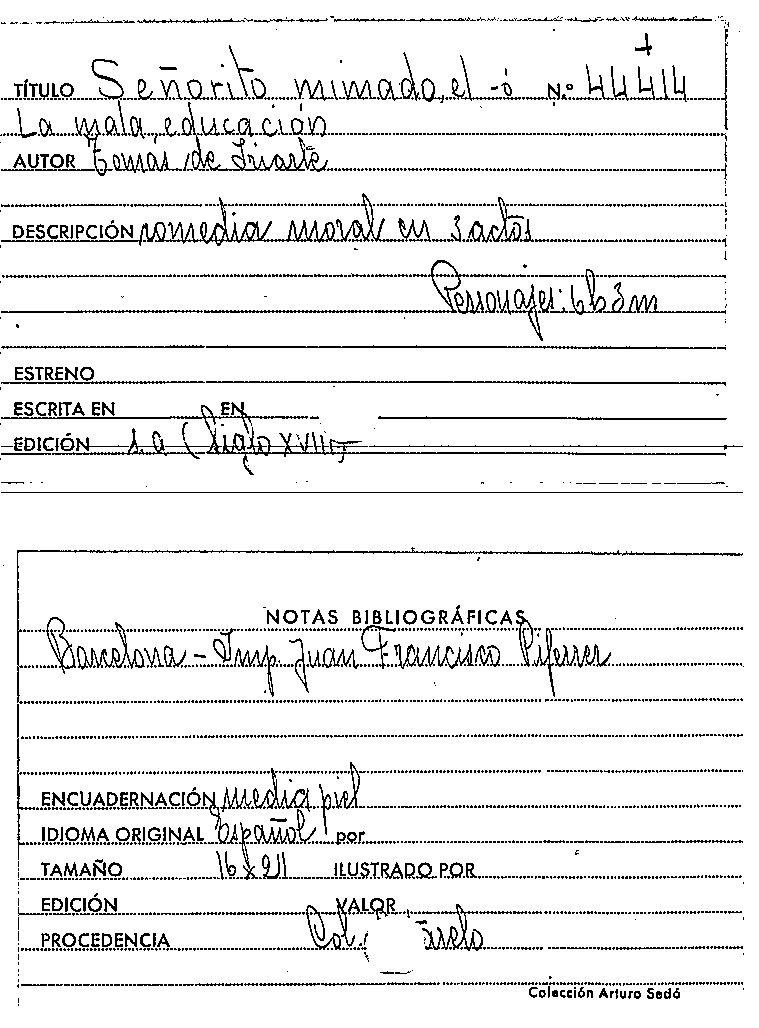 TÍTULO Señorito mimado, el -ó N.º 44414
La mala educación
AUTOR Tomás de Iriarte
DESCRIPCIÓN comedia moral en 3 actos
Personajes: 6h3m
ESTRENO
ESCRITA EN EN
EDICIÓN s.a (Siglo XVIII
NOTAS BIBLIOGRÁFICAS
Barcelona - Imp. Juan Francisco Piferrer
ENCUADERNACIÓN media piel
IDIOMA ORIGINAL Español por
TAMAÑO 16 x 21 ILUSTRADO POR
EDICIÓN VALOR
PROCEDENCIA Col.
Colección Arturo Sedó